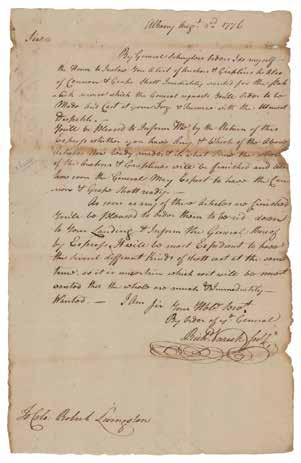 Albany Augt. 2d. 1776
Sir
By General Schuylers Orders I do myself
the Honor to Inclose You a List of Anchors & Graplins & also
of Cannon & Grape Shott Immediately wanted for the fleet
which were which the General requests Will Order to be
Made and Cast at Your Forge & Furnace with the Utmost
Dispatch.
You'll be Pleased to Inform Me by the Return of this
Express whether you have Any & Which of the Above
Articles Now Ready made & in what Time the
of the Anchors & Graplins will be finished and also
how soon the General May Expect to have the Can
non & Grape Shott ready
As soon as any of the Articles are finished
You'll be pleased to Order them to be rid down
to Your Landing & Inform the General thereof
by Express, It will be most Expedient to have
the several different Kinds of shott cast at the same
time, as it is uncertain which sort will be most
wanted tho the whole are much & Immediately
Wanted. — I Am Sir Your Hble Servt.
By Order of ye General
Richd Varick Secy.
To Colo. Robert Livingston